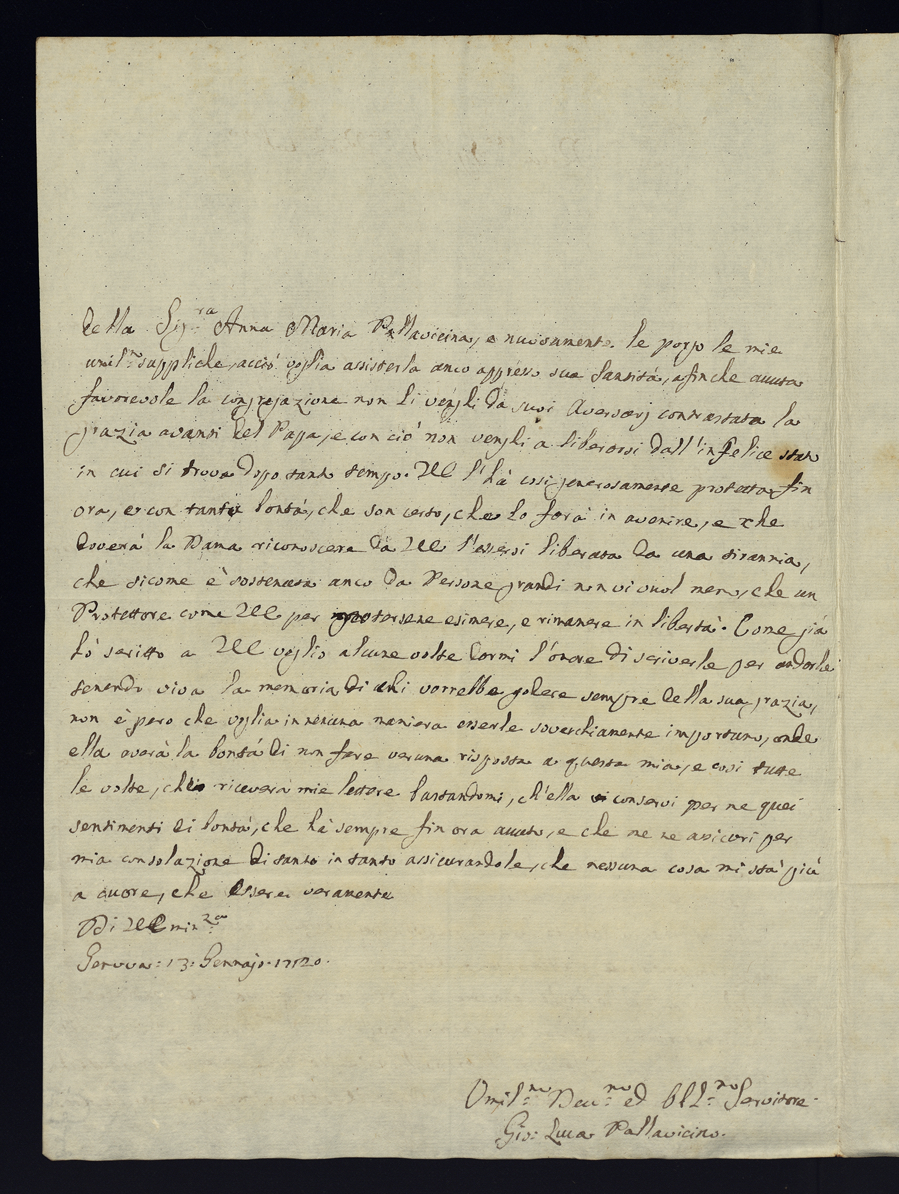 della Sig:ra Anna Maria Pallavicina, e nuovamente le porgo le mie
umil:me suppliche, acciò voglia assisterla anco appresso sua Santità, affinche avuta
favorevole la congregazione non li venghi da suoi Aversarj contrastata la
grazia avanti del Papa, e con ciò non venghi a liberarsi dall'infelice stato
in cui si trova doppo tanto tempo. VE l'hà così generosamente protetta fin
ora, e con tanta bontà, che son certo, che lo farà in avenire, e che
doverà la Dama riconoscere da VE l'essersi liberata da una tirannia,
che sicome è sostenuta anco da Persone grandi non vi vuol meno, che un
Protettore come VE per potersene esimere, e rimanere in libertà. Come già
hò scritto a VE voglio alcune volte darmi l'onore di scriverle per andarle
tenendo viva la memoria di chi vorrebbe godere sempre della sua grazia,
non è però che voglia in nessuna maniera esserle soverchiamente importuno, onde
ella averà la bontà di non fare veruna risposta a questa mia, e così tutte
le volte, che riceverà mie lettere bastandomi, ch'ella conservi per me quei
sentimenti di bontà, che hà sempre fin ora avuto, e che me ne assicuri per
mia consolazione di tanto in tanto assicurandole, che nessuna cosa mi stà più
a cuore, che essere veramente
Di VE
Genova: 13: Gennajo: 1720.
Umil:mo Dev:mo ed Obl:mo Servitore
Gio: Luca Pallavicino.